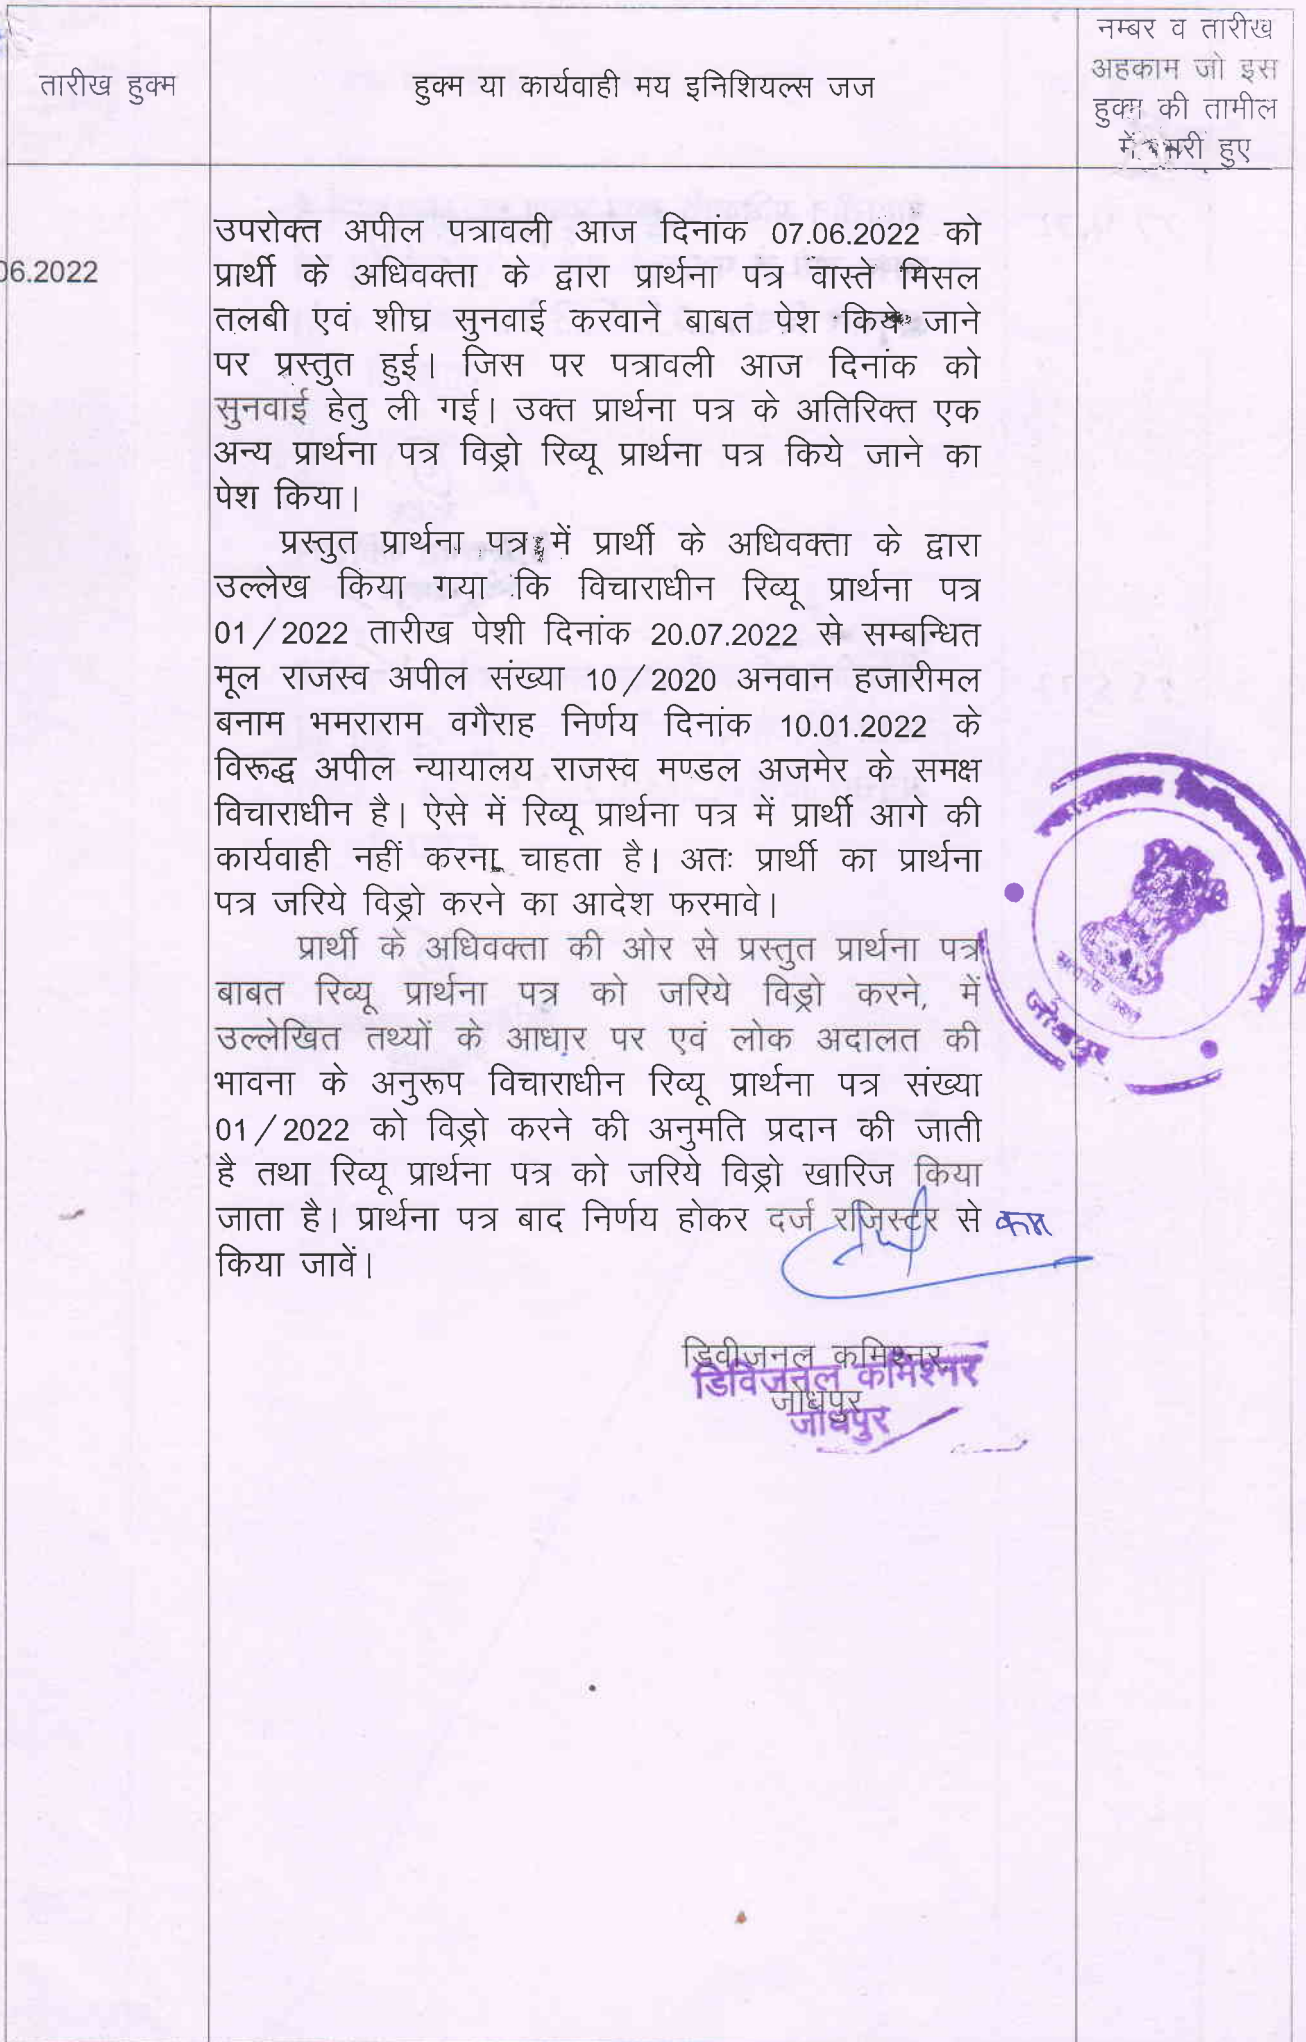 तारीख हुक्म
हुक्म या कार्यवाही मय इनिशियल्स जज
नम्बर व तारीख
अहकाम जो इस
हुक्म की तामील
में हुए
06.2022
उपरोक्त अपील पत्रावली आज दिनांक 07.06.2022 को
प्रार्थी के अधिवक्ता के द्वारा प्रार्थना पत्र वास्ते मिसल
तलबी एवं शीघ्र सुनवाई करवाने बाबत पेश किये जाने
पर प्रस्तुत हुई। जिस पर पत्रावली आज दिनांक को
सुनवाई हेतु ली गई। उक्त प्रार्थना पत्र के अतिरिक्त एक
अन्य प्रार्थना पत्र विड्रो रिव्यू प्रार्थना पत्र किये जाने का
पेश किया।
प्रस्तुत प्रार्थना पत्र में प्रार्थी के अधिवक्ता के द्वारा
उल्लेख किया गया कि विचाराधीन रिव्यू प्रार्थना पत्र
01/2022 तारीख पेशी दिनांक 20.07.2022 से सम्बन्धित
मूल राजस्व अपील संख्या 10/2020 अनवान हजारीमल
बनाम भमराराम वगैराह निर्णय दिनांक 10.01.2022 के
विरूद्ध अपील न्यायालय राजस्व मण्डल अजमेर के समक्ष
विचाराधीन है। ऐसे में रिव्यू प्रार्थना पत्र में प्रार्थी आगे की
कार्यवाही नहीं करना चाहता है। अतः प्रार्थी का प्रार्थना
पत्र जरिये विड्रो करने का आदेश फरमावे।
प्रार्थी के अधिवक्ता की ओर से प्रस्तुत प्रार्थना पत्र
बाबत रिव्यू प्रार्थना पत्र को जरिये विड्रो करने, में
उल्लेखित तथ्यों के आधार पर एवं लोक अदालत की
भावना के अनुरूप विचाराधीन रिव्यू प्रार्थना पत्र संख्या
01/2022 को विड्रो करने की अनुमति प्रदान की जाती
है तथा रिव्यू प्रार्थना पत्र को जरिये विड्रो खारिज किया
जाता है। प्रार्थना पत्र बाद निर्णय होकर दर्ज रजिस्टर से कम
किया जावें।
डिवीजनल कमिश्नर,
डिविजनल कमिश्नर
जोधपुर
जोधपुर
जोधपुर